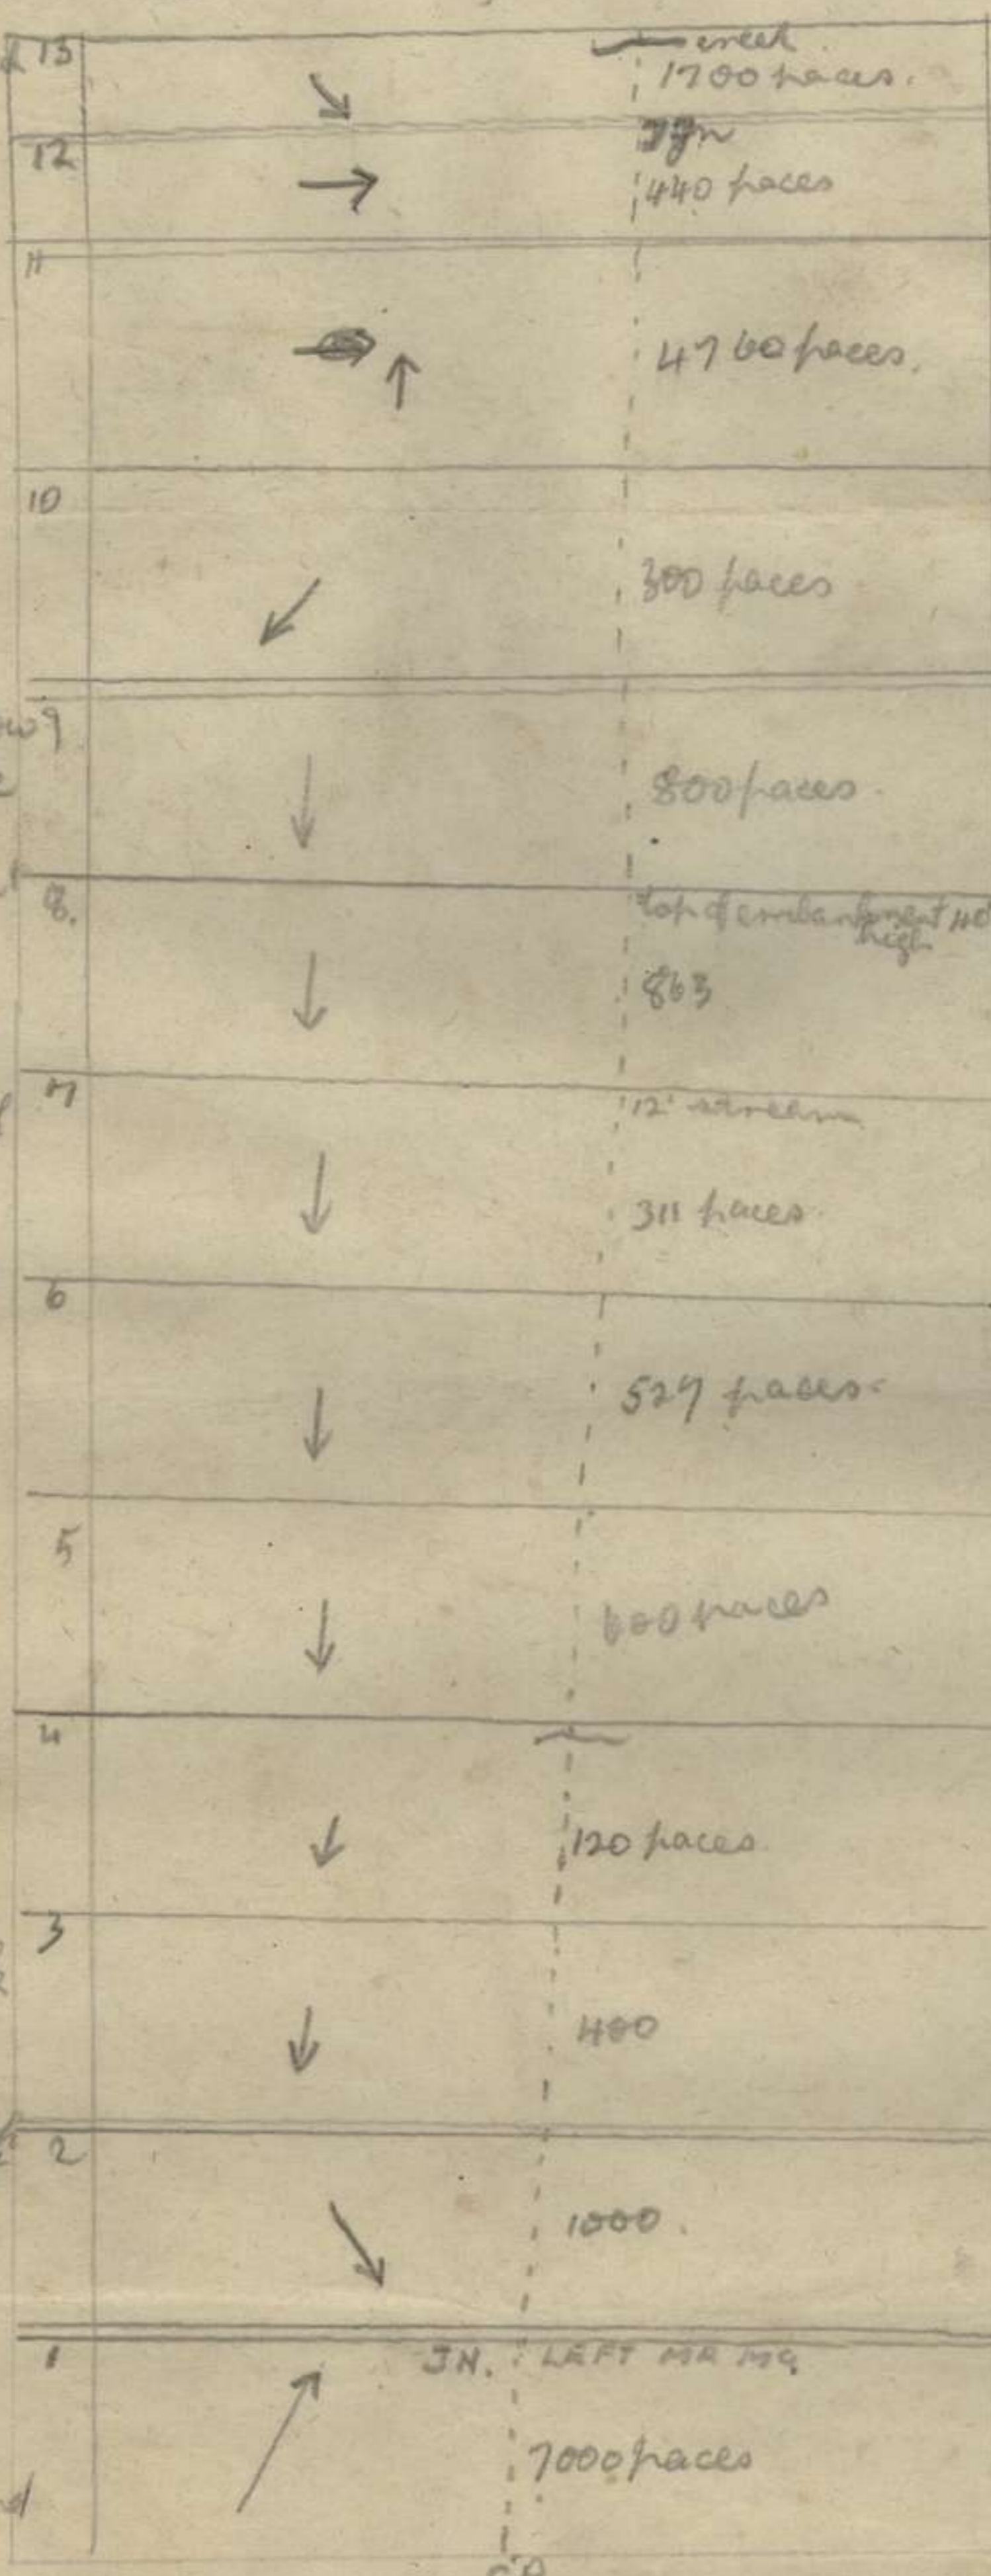 13
creek
1700 paces.
12
Jn
440 paces
11
4760 paces.
10
300 paces
9
800 paces.
8.
top of embankment 40'
high
863
7
12' stream
311 paces.
6
527 paces.
5
600 paces
4
120 paces.
3
400
2
1000.
1
JN. LEFT MR MG
7000 paces